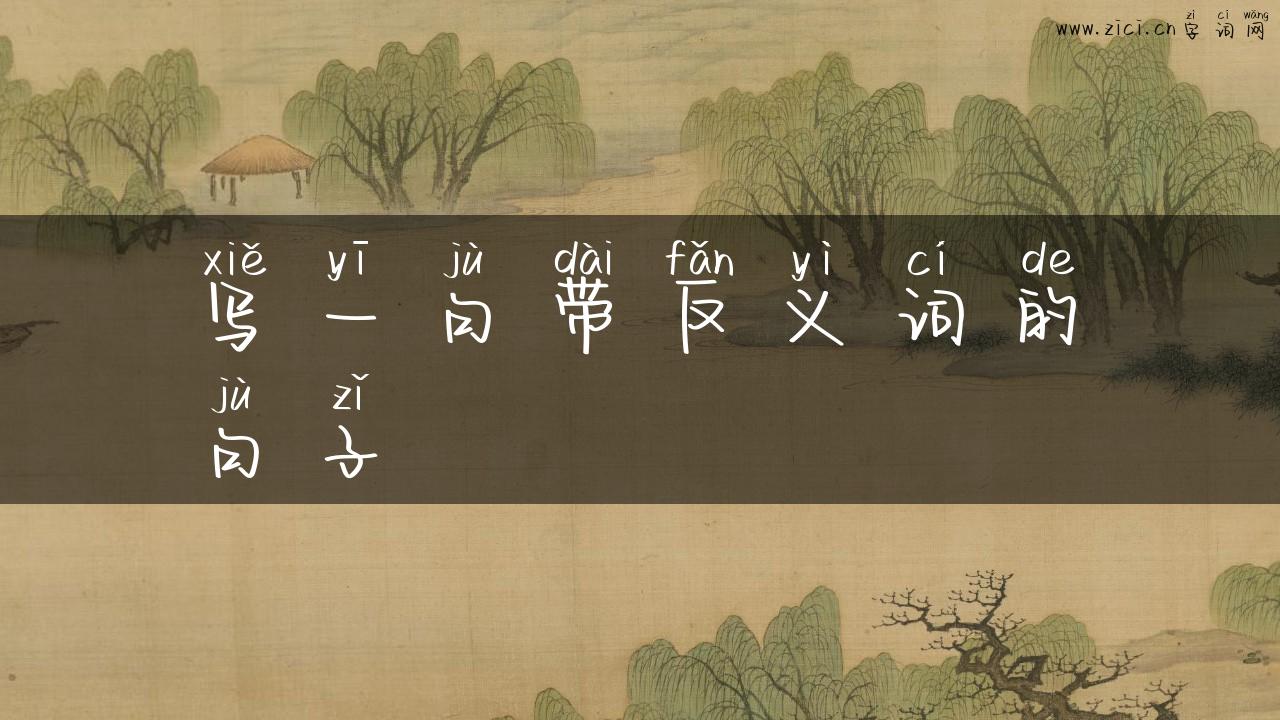 zì cí wǎng
www.zici.cn 字词网
xiě yī jù dài fǎn yì cí de
写一句带反义词的
jù zǐ
句子